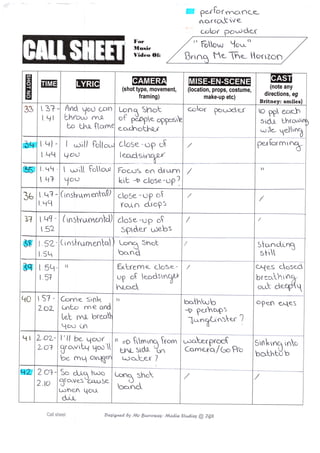 performance
narrative
color powder
CALL SHEET
For
Music
Video Of:
" Follow You "
Bring Me The Horizon
TIME
LYRIC
CAMERA
(shot type, movement,
framing)
MISE-EN-SCENE
(location, props, costume,
make-up etc)
CAST
(note any
directions, eg
Britney: smiles)
33
1.37-
1.41
And you can
throw me
to the flame
Long Shot
of people opposite
eachother
color powder
10 ppl each
side throwing
while yelling
34
1.41-
1.44
I will follow
you
close-up of
leadsinger
/
performing
35
1.44-
1.47
I will follow
you
Focus on drum
kit → close-up?
/
"
36
1.47-
1.49
(instrumental)
close-up of
rain drops
/
/
37
1.49-
1.52
(instrumental)
close-up of
spider webs
/
/
38
1.52-
1.54
(instrumental)
Long Shot
band
/
Standing
still
39
1.54-
1.57
"
Extreme close-
up of leadsinger
head
/
eyes closed
breathing
out deeply
40
1.57-
2.02
Come sink
into me and
let me breath
you in
"
bathtub
→ perhaps
Junglinster ?
open eyes
41
2.02-
2.07
I'll be your
gravity you'll
be my oxygen
" → filming from
the side in
water ?
waterproof
camera/Go Pro
Sinking into
bathtub
42
2.07-
2.10
So dig two
graves cause
when you
die
Long shot
band
/
/
Call sheet
Designed by Mr Burrowes - Media Studies @